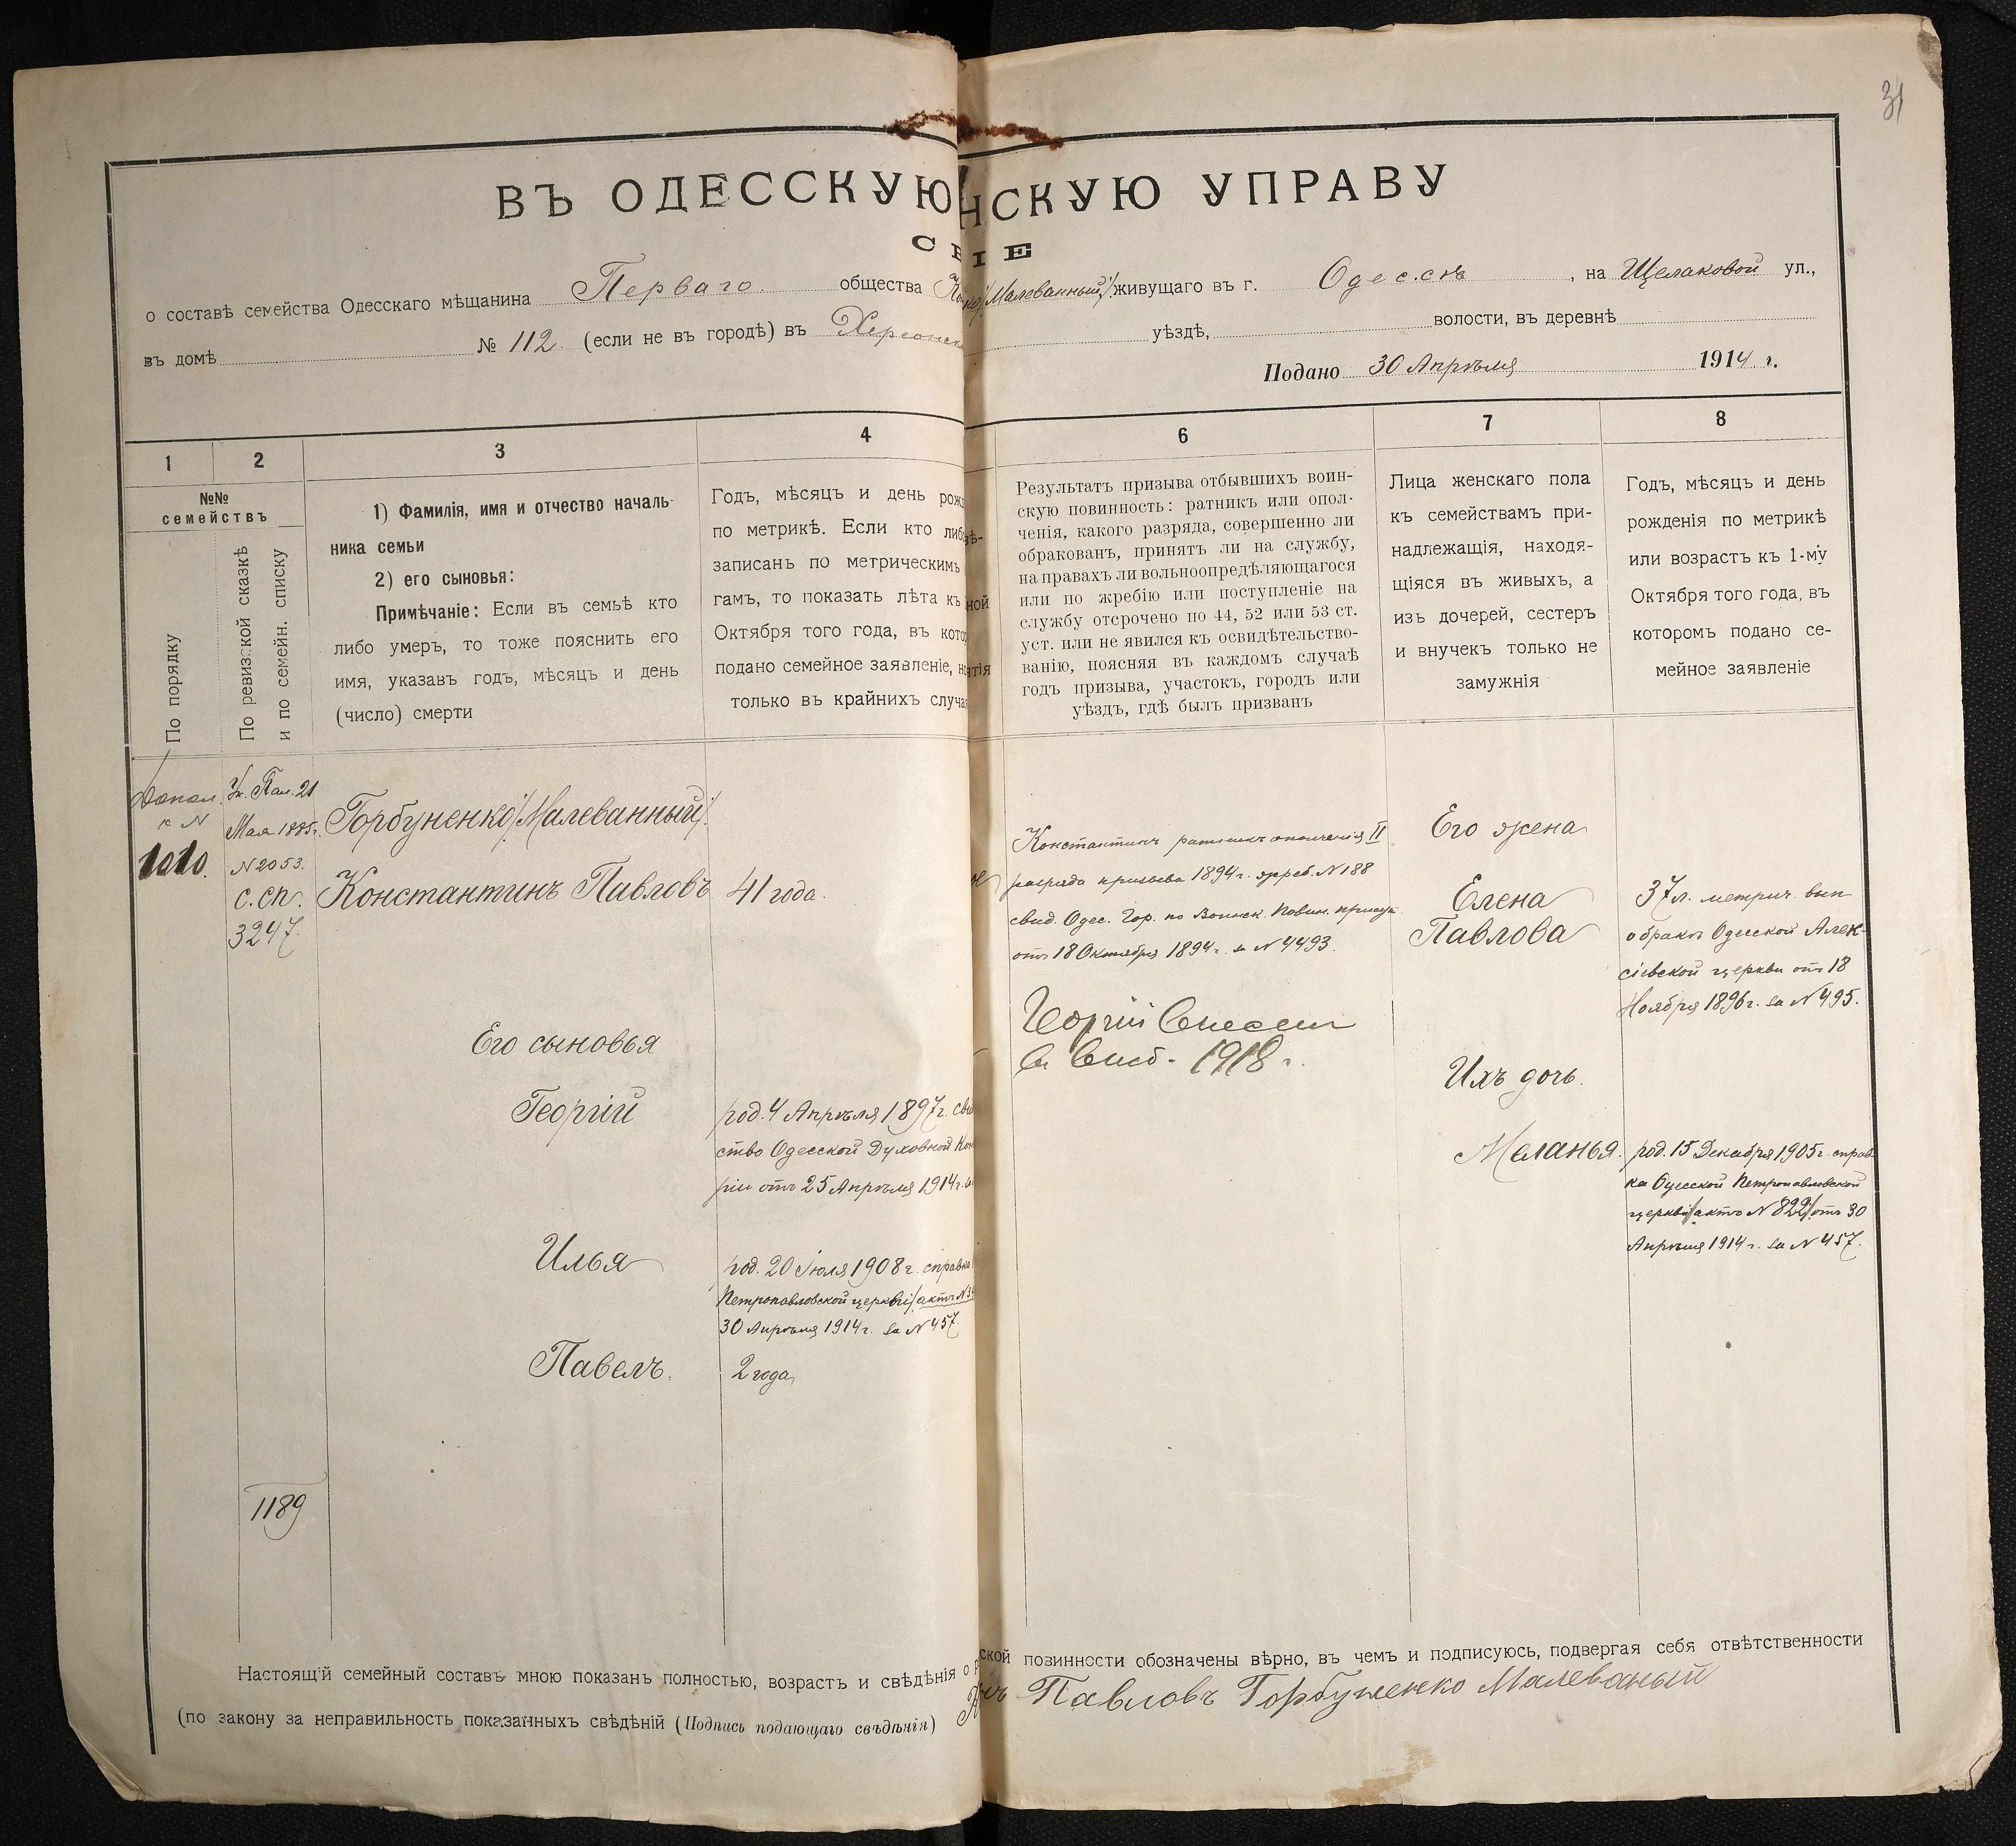 31
ВЪ ОДЕССКУЮ
НСКУЮ УПРАВУ
о составѣ семейства Одесскаго мѣщанина Перваго общества
/Малеванный/ живущаго въ г. Одессѣ, на Щелаковой ул.,
въ домѣ № 112 (если не въ городѣ) въ Херсонск
уѣздѣ, волости, въ деревнѣ
Подано 30 Апрѣля 1914 г.
1
2
3
4
6
7
8
№№
семействъ
По порядку
По ревизской сказкѣ
и по семейн. списку
1) Фамилія, имя и отчество началь-
ника семьи
2) его сыновья:
Примѣчаніе: Если въ семьѣ кто
либо умеръ, то тоже пояснить его
имя, указавъ годъ, мѣсяцъ и день
(число) смерти
Годъ, мѣсяцъ и день рожд
по метрикѣ. Если кто либ
записанъ по метрическимъ
гамъ, то показать лѣта къ
Октября того года, въ котор
подано семейное заявленіе, но
только въ крайнихъ случа
вѣ-
ной
ятія
Результатъ призыва отбывшихъ воин-
скую повинность: ратникъ или опол-
ченія, какого разряда, совершенно ли
обракованъ, принятъ ли на службу,
на правахъ ли вольноопредѣляющагося
или по жребію или поступленіе на
службу отсрочено по 44, 52 или 53 ст.
уст. или не явился къ освидѣтельство-
ванію, поясняя въ каждомъ случаѣ
годъ призыва, участокъ, городъ или
уѣздъ, гдѣ былъ призванъ
Лица женскаго пола
къ семействамъ при-
надлежащія, находя-
щіяся въ живыхъ, а
изъ дочерей, сестеръ
и внучекъ только не
замужнія
Годъ, мѣсяцъ и день
рожденія по метрикѣ
или возрастъ къ 1-му
Октября того года, въ
которомъ подано се-
мейное заявленіе
Допол.
к N
1010.
Ук. Пал. 21
Мая 1885г.
N 2053.
с. сп.
3247.
Горбуненко /Малеванный/.
Константинъ Павловъ
41 года.
Константинъ ратникъ ополченія II
разряда призыва 1894 г. жреб. N 188
свид. Одес. Гор. по Воинск. Повин. присут.
отъ 18 Октября 1894 г. за N 4493.
Георгій Внесен
в Спис. 1918 г.
Его жена
Елена
Павлова
37 л. метрич. вып
о бракѣ Одесской Алек-
сіевской церкви отъ 18
Ноября 1896 г. за N 495.
Его сыновья
Георгій
род. 4 Апрѣля 1897 г. сви
ство Одесской Духовной Кон
ріи отъ 25 Апрѣля 1914 г. за
Ихъ дочь.
Меланья.
род. 15 Декабря 1905 г. справ-
ка Одесской Петропавловской
церкви /актъ N 822/ отъ 30
Апрѣля 1914 г. за N 457.
Илья
род. 20 Іюля 1908 г. справка
Петропавловской церкви /актъ N 3
30 Апрѣля 1914 г. за N 457.
Павелъ.
2 года
1189
Настоящій семейный составъ мною показанъ полностью, возрастъ и свѣдѣнія о
ской повинности обозначены вѣрно, въ чемъ и подписуюсь, подвергая себя отвѣтственности
(по закону за неправильность показанныхъ свѣдѣній (Подпись подающаго свѣдѣнія)
Павловъ Горбуненко Малеваный